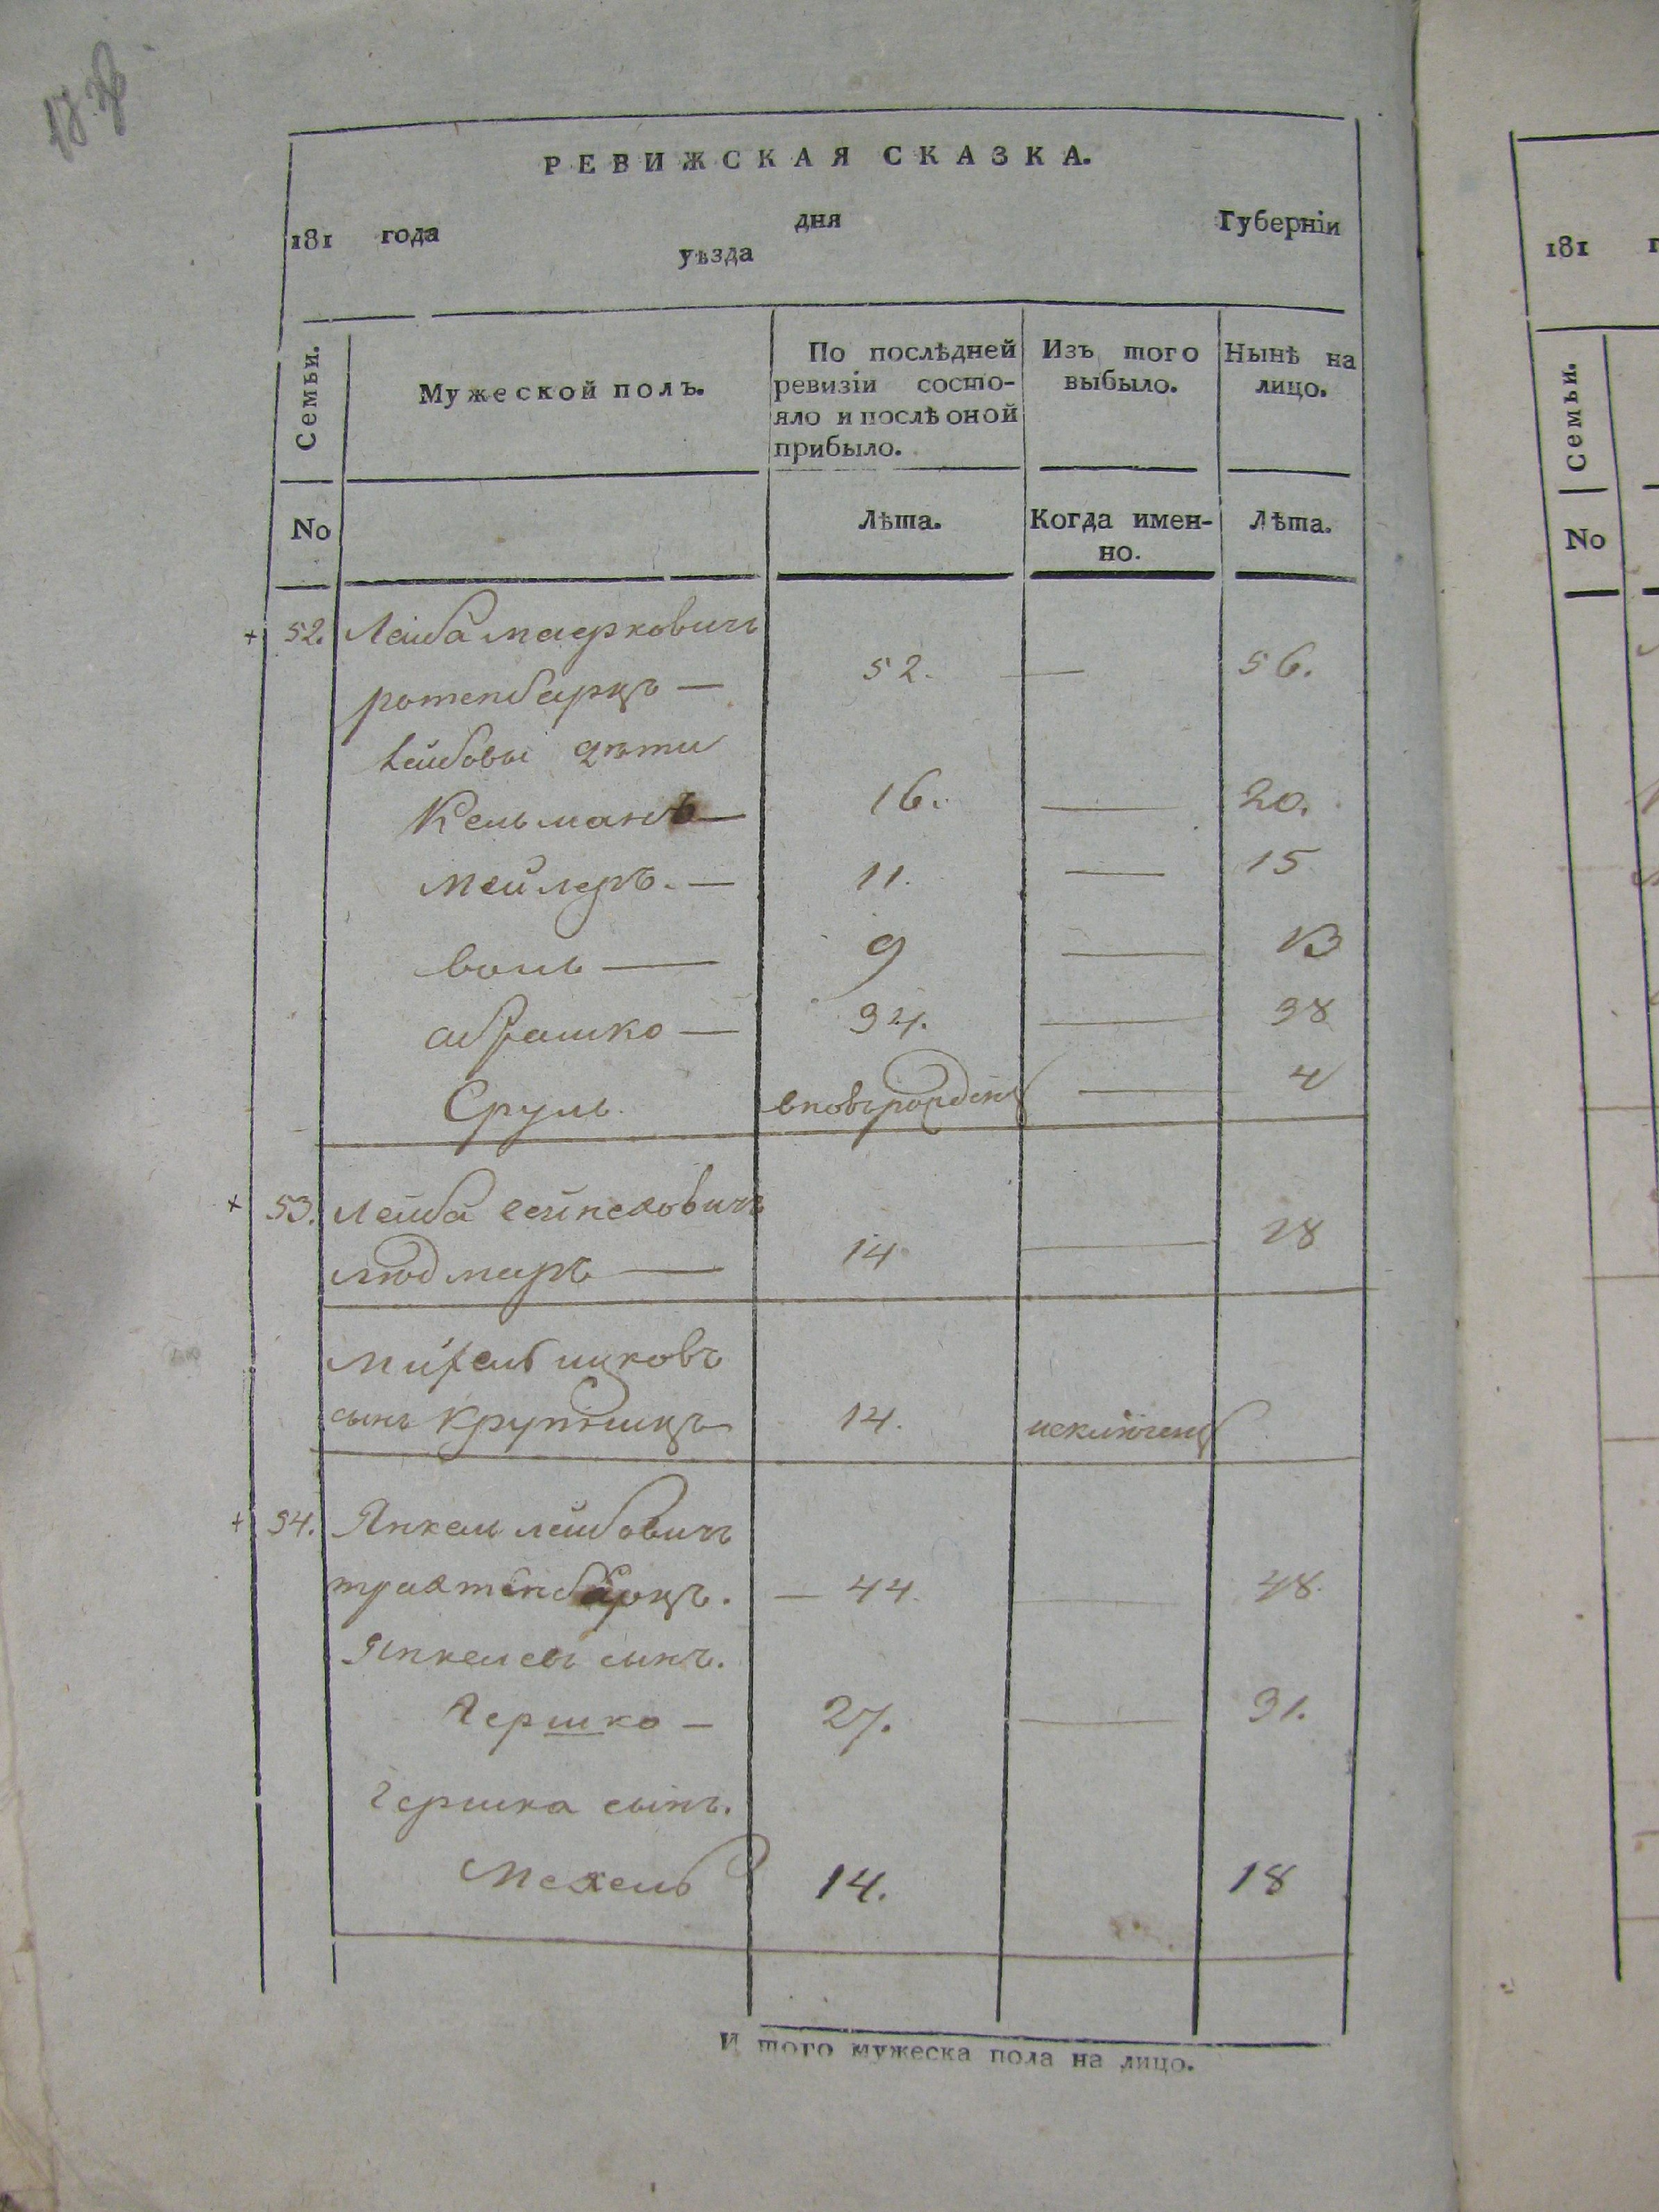 РЕВИЖСКАЯ СКАЗКА.
181 года дня Губерніи
уѣзда
Семьи.
Мужеской полъ.
По послѣдней ревизіи состояло и послѣ оной прибыло.
Изъ того выбыло.
Нынѣ на лицо.
No
Лѣта.
Когда именно.
Лѣта.
+ 52. Лейба марковичъ
ротенбергъ — 52. — 56.
Лейбовы дѣти
Кельманъ — 16. — 20.
мейлеръ. — 11. — 15
волъ — 9 — 13
абрашко — 34. — 38
Сруль. вновьрожденъ — 4
+ 53. Лейба
людмеръ — 14 — 18
ицковъ
сынъ крупникъ 14. исключенъ
+ 54. Янкель лейбовичъ
трахтенбергъ. — 44. — 48.
Янкелевъ сынъ.
Гершко — 27. — 31.
Гершка сынъ.
Мехель 14. 18
И того мужеска пола на лицо.
Семьи.
No
181